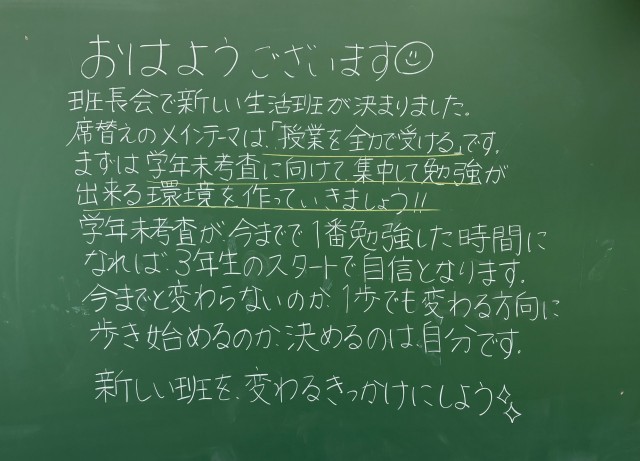 おはようございます☺
班長会で新しい生活班が決まりました。
席替えのメインテーマは、「授業を全力で受ける」です。
まずは学年末考査に向けて集中して勉強が
出来る環境を作っていきましょう!!
学年末考査が、今までで1番勉強した時間に
なれば、3年生のスタートで自信となります。
今までと変わらないのか、1歩でも変わる方向に
歩き始めるのか、決めるのは自分です。
新しい班を、変わるきっかけにしよう✨